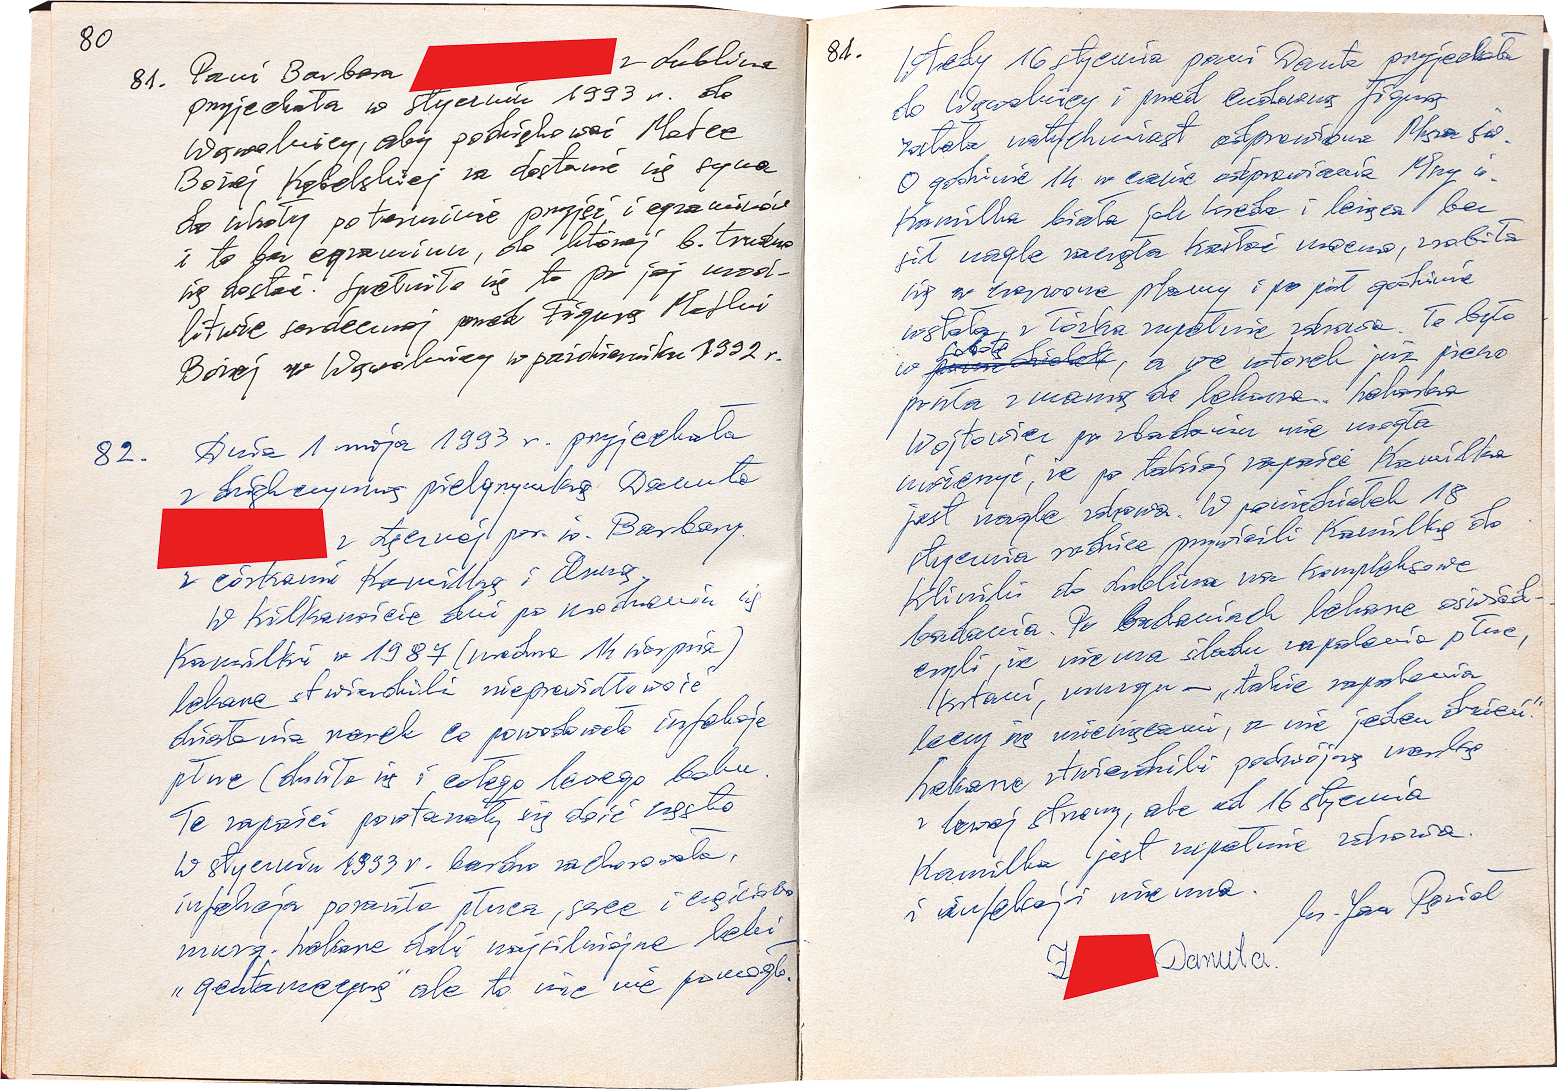 80
81. Pani Barbara z Lublina
przyjechała w styczniu 1993 r. do
Wąwolnicy, aby podziękować Matce
Bożej Kębelskiej za dostanie się syna
do szkoły po terminie przyjęć i egzaminów
i to bez egzaminu, do której b. trudno
się dostać. Spełniło się to po jej mod-
litwie serdecznej przed Figurą Matki
Bożej w Wąwolnicy w październiku 1992 r.
82. Dnia 1 maja 1993 r. przyjechała
z dziękczynną pielgrzymką Danuta
z Łęcznej par. św. Barbary
z córkami Kamilką i Anną.
W kilkanaście dni po urodzeniu się
Kamilki w 1987 (urodzona 14 sierpnia)
lekarze stwierdzili nieprawidłowość
działania nerek co powodowało infekcje
płuc (dusiła się i całego lewego boku.
Te zapaści powtarzały się dość często
W styczniu 1993 r. bardzo zachorowała,
infekcja poraziła płuca, serce i częściowo
mózg. Lekarze dali najsilniejsze leki
„gentamecynę" ale to nic nie pomogło.
81.
Wtedy 16 stycznia pani Danuta przyjechała
do Wąwolnicy i przed cudowną Figurą
została natychmiast odprawiona Msza św.
O godzinie 14 w czasie odprawiania Mszy św.
Kamilka biała jak kreda i leżąca bez
sił nagle zaczęła kasłać mocno, zrobiła
się w czerwone plamy i po pół godzinie
wstała z łóżka zupełnie zdrowa. To było
w sobotę, a we wtorek już pieszo
poszła z mamą do lekarza. Lekarka
Wójtowicz po zbadaniu nie mogła
uwierzyć, że po takiej zapaści Kamilka
jest nagle zdrowa. W poniedziałek 18
stycznia rodzice przywieźli Kamilkę do
Kliniki do Lublina na kompleksowe
badania. Po badaniach lekarze oświad-
czyli, że nie ma śladu zapalenia płuc,
krtani, mózgu – „takie zapalenia
leczy się miesiącami, a nie jeden dzień."
Lekarze stwierdzili podwójną nerkę
z lewej strony, ale od 16 stycznia
Kamilka jest zupełnie zdrowa
i infekcji nie ma.
ks. Jan Pęzioł
Danuta.